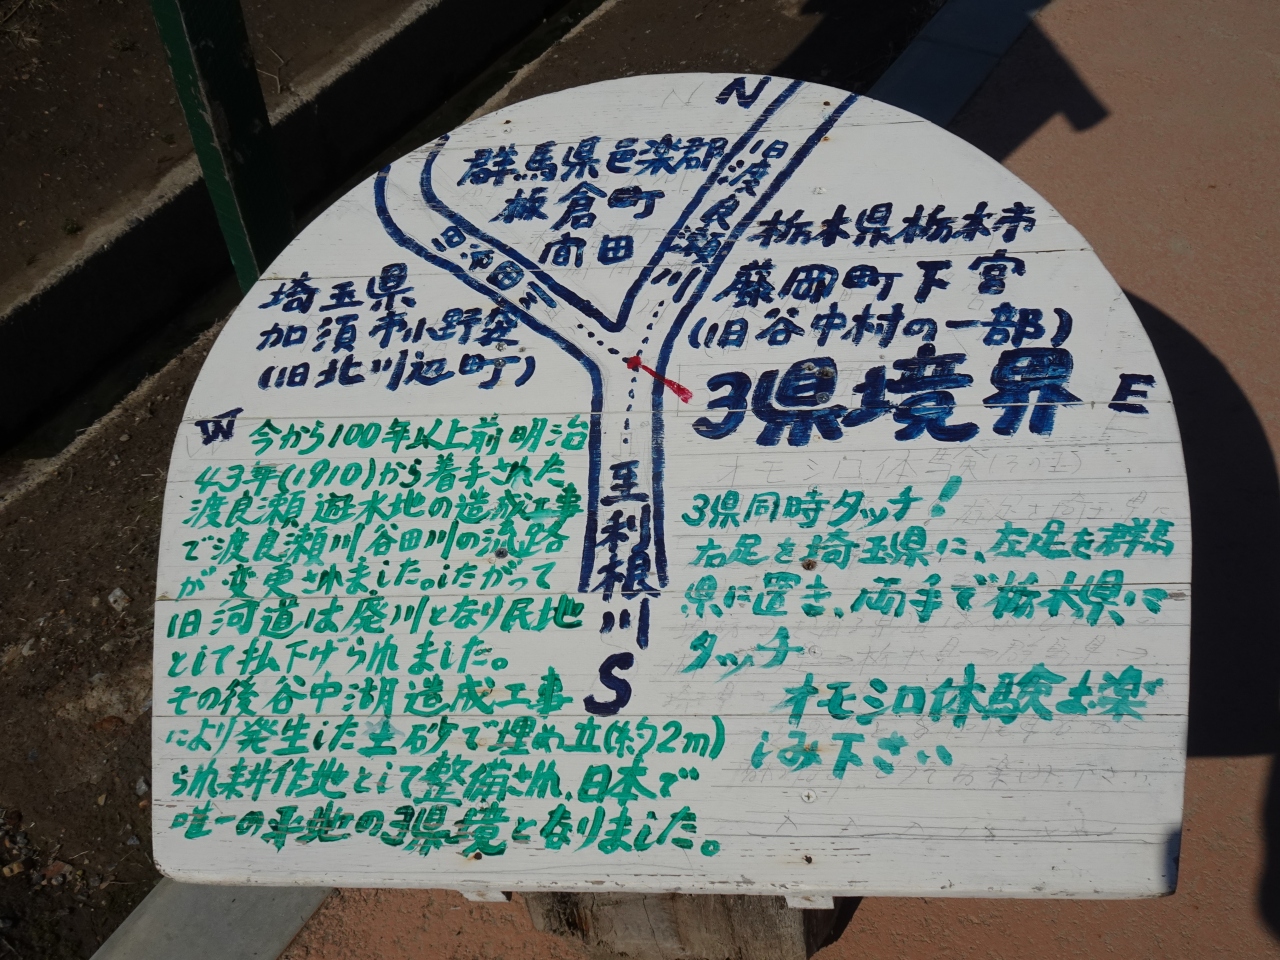 N
群馬県邑楽郡
板倉町
間田
旧渡良瀬川
旧谷田川
栃木県栃木市
藤岡町下宮
(旧谷中村の一部)
埼玉県
加須市小野袋
(旧北川辺町)
3県境界
E
W
今から100年以上前明治
43年(1910)から着手された
渡良瀬遊水地の造成工事
で渡良瀬川谷田川の流路
が変更されました。したがって
旧河道は廃川となり民地
として払下げられました。
その後谷中湖造成工事
により発生した土砂で埋め立(約2m)
られ耕作地として整備され、日本で
唯一の平地の3県境となりました。
至利根川
S
3県同時タッチ!
右足を埼玉県に、左足を群馬
県に置き、両手で栃木県に
タッチ
オモシロ体験お楽
しみ下さい